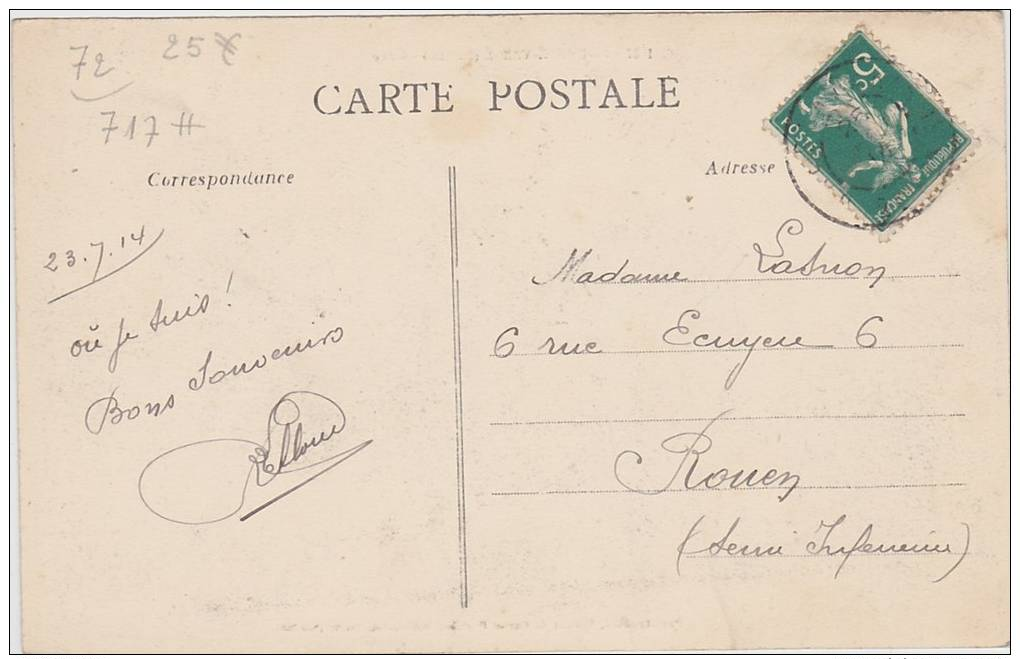 72 25
717 #
CARTE POSTALE
Correspondance
Adresse
5c
POSTES
REPUBLIQUE FRANÇAISE
23.7.14
où je suis !
Bons Souvenirs
Madame
6 rue Ecuyere 6
Rouen
(Seine Inferieure)